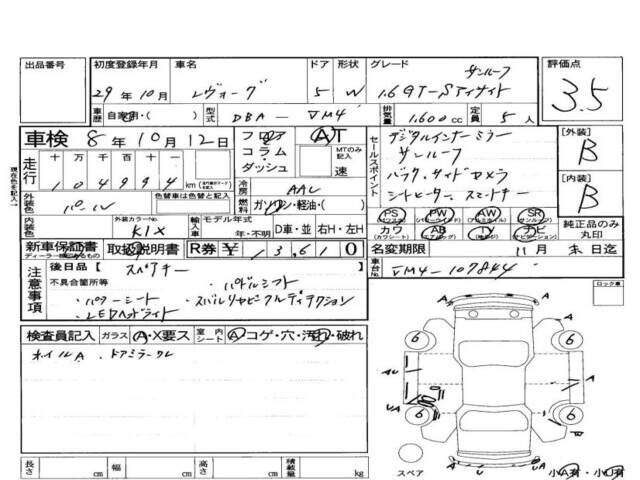 出品番号 初度登録年月 車名 ドア 形状 グレード 評価点
サンルーフ
29年10月 レヴォーグ 5 W 1.6GT-Sアイサイト 3.5
車歴 自家用・( ) 型式 DBA-VM4 排気量 1,600cc 定員 5人
車検 8年10月12日 フロア コラム・ダッシュ AT MTのみ記入 速
走行 十万千百十 104994 km
セールスポイント
デジタルインナーミラー
サンルーフ
バック、サイドカメラ
シートヒーター、スマートキー
[外装] B
[内装] B
外装色 パール 色替車は色替色を記入
冷房 AAC
燃料 ガソリン・軽油・( )
内装色 外装カラーNo. K1X 輸入車 モデル年式 年・不明 D車・並 右H・左H
PS PW AW SR
カワ AB TV ナビ 純正品のみ丸印
新車保証書 取扱説明書 R券 ¥13,610 名変期限 11月末日迄
ディーラー捺印のあるもの
車台No. VM4-107844
注意事項 後日品( スペアキー )
不具合箇所等 ・パドルシフト
・パワーシート ・スバルリヤビークルディテクション
・LEDヘッドライト
ロック車
検査員記入 ガラス A・X要ス 室内シート A コゲ・穴・汚れ・破れ
ホイルA、ドアミラークレ
6 6
A
AU
UA
6 6
A
A U UA
スペア 小A有・小U有
長さ cm 幅 cm 高さ cm 積載量 kg
現在色を記入→